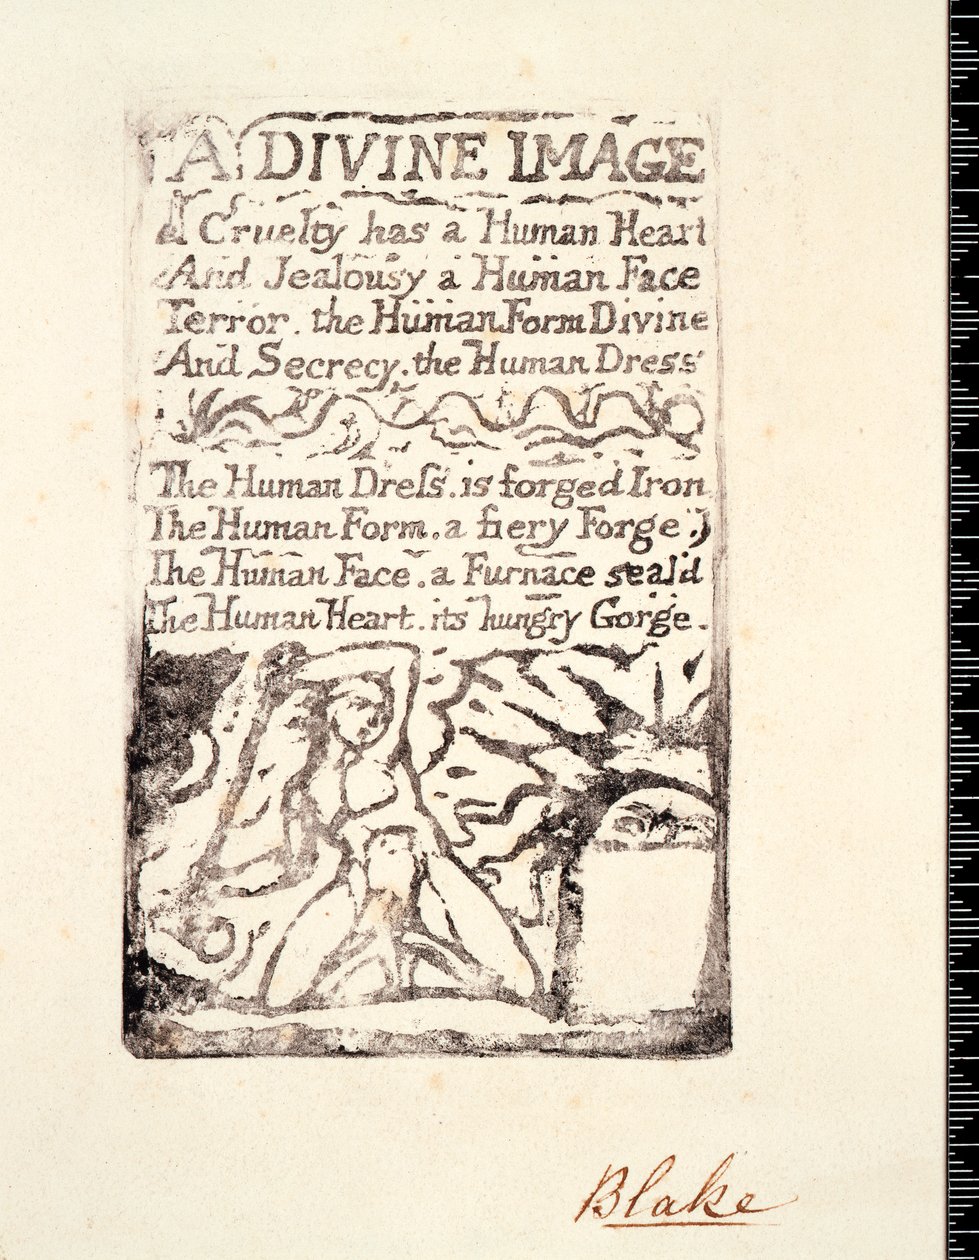 A DIVINE IMAGE
Cruelty has a Human Heart
And Jealousy a Human Face
Terror. the Human Form Divine
And Secrecy. the Human Dress
The Human Dreſs. is forged Iron
The Human Form. a fiery Forge.
The Human Face. a Furnace seal'd
The Human Heart. its hungry Gorge.
Blake